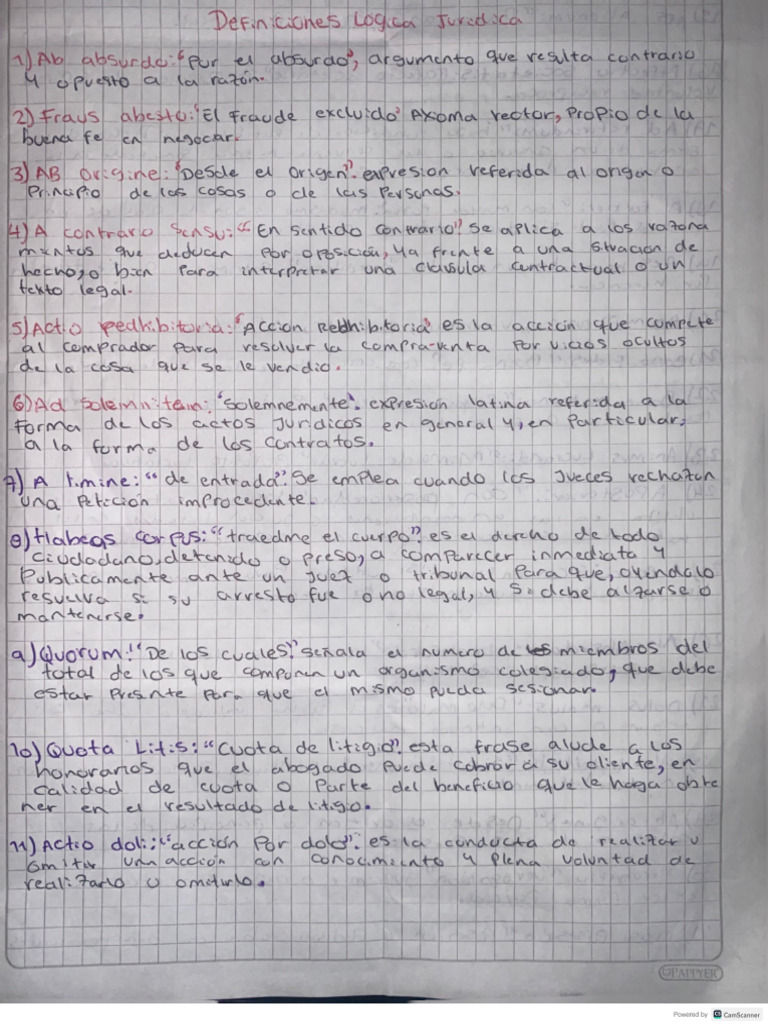 Definiciones Logica Juridica
1) Ab absurdo: "Por el absurdo", argumento que resulta contrario
y opuesto a la razón.
2) Fraus abesto: "El fraude excluido" Axoma rector, propio de la
buena fe en negocar.
3) AB Origine: "Desde el origen". expresion referida al origen o
Principio de las cosas o de las personas.
4) A contrario Sensu: "En sentido contrario" se aplica a los razona
mientos que deducen por oposición, ya frente a una situacion de
hecho, o bien para interpretar una clausula contractual o un
texto legal.
5) Actio redhibitoria: "Accion Redhibitoria" es la acción que compete
al comprador para resolver la compra-venta por vicios ocultos
de la cosa que se le vendio.
6) Ad Solemnitem: "Solemnemente". expresion latina referida a la
forma de los actos Juridicos en general y, en particular,
a la forma de los contratos.
7) A limine: "de entrada". Se emplea cuando los Jueces rechazen
una Peticion improcedente.
8) Habeas Corpus: "traedme el cuerpo" es el derecho de todo
ciudadano, detenido o preso, a comparecer inmediata y
Publicamente ante un Juez o tribunal para que, oyendolo
resuelva si su arresto fue o no legal, y si debe alzarse o
mantenerse.
9) Quorum: "De los cuales". señala el numero de los miembros del
total de los que componen un organismo colegiado, que debe
estar presente para que el mismo pueda sesionar.
10) Quota Litis: "cuota de litigio". esta frase alude a los
honorarios que el abogado puede cobrar a su cliente, en
calidad de cuota o parte del beneficio que le haga obte
ner en el resultado de litigio.
11) Actio doli: "acción por dolo". es la conducta de realizar u
omitir una acción con conocimiento y plena voluntad de
realizarlo u omitirlo.
PAPPYER
Powered by CS CamScanner